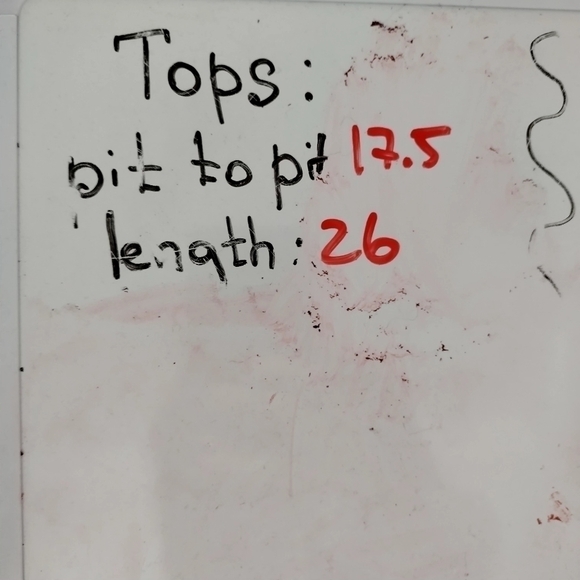 Tops:
pit to pit 17.5
length: 26